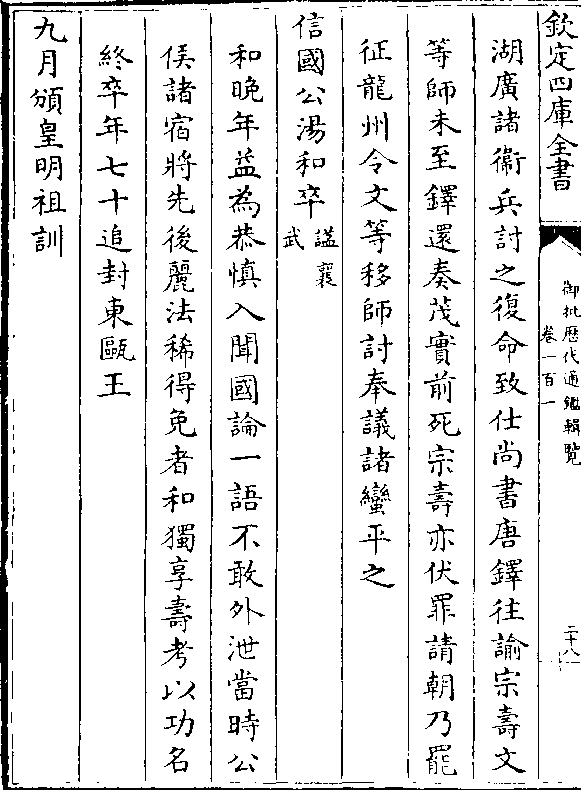 欽定四庫全書
御批歴代通鑑輯覽
卷一百一
二十八
湖廣諸衞兵討之復命致仕尚書唐鐸往諭宗壽文
等師未至鐸還奏茂實前死宗壽亦伏罪請朝乃罷
征龍州令文等移師討奉議諸蠻平之
信國公湯和卒諡襄
武
和晚年益為恭慎入聞國論一語不敢外泄當時公
侯諸宿將先後麗法稀得免者和獨享壽考以功名
終卒年七十追封東甌王
九月頒皇明祖訓